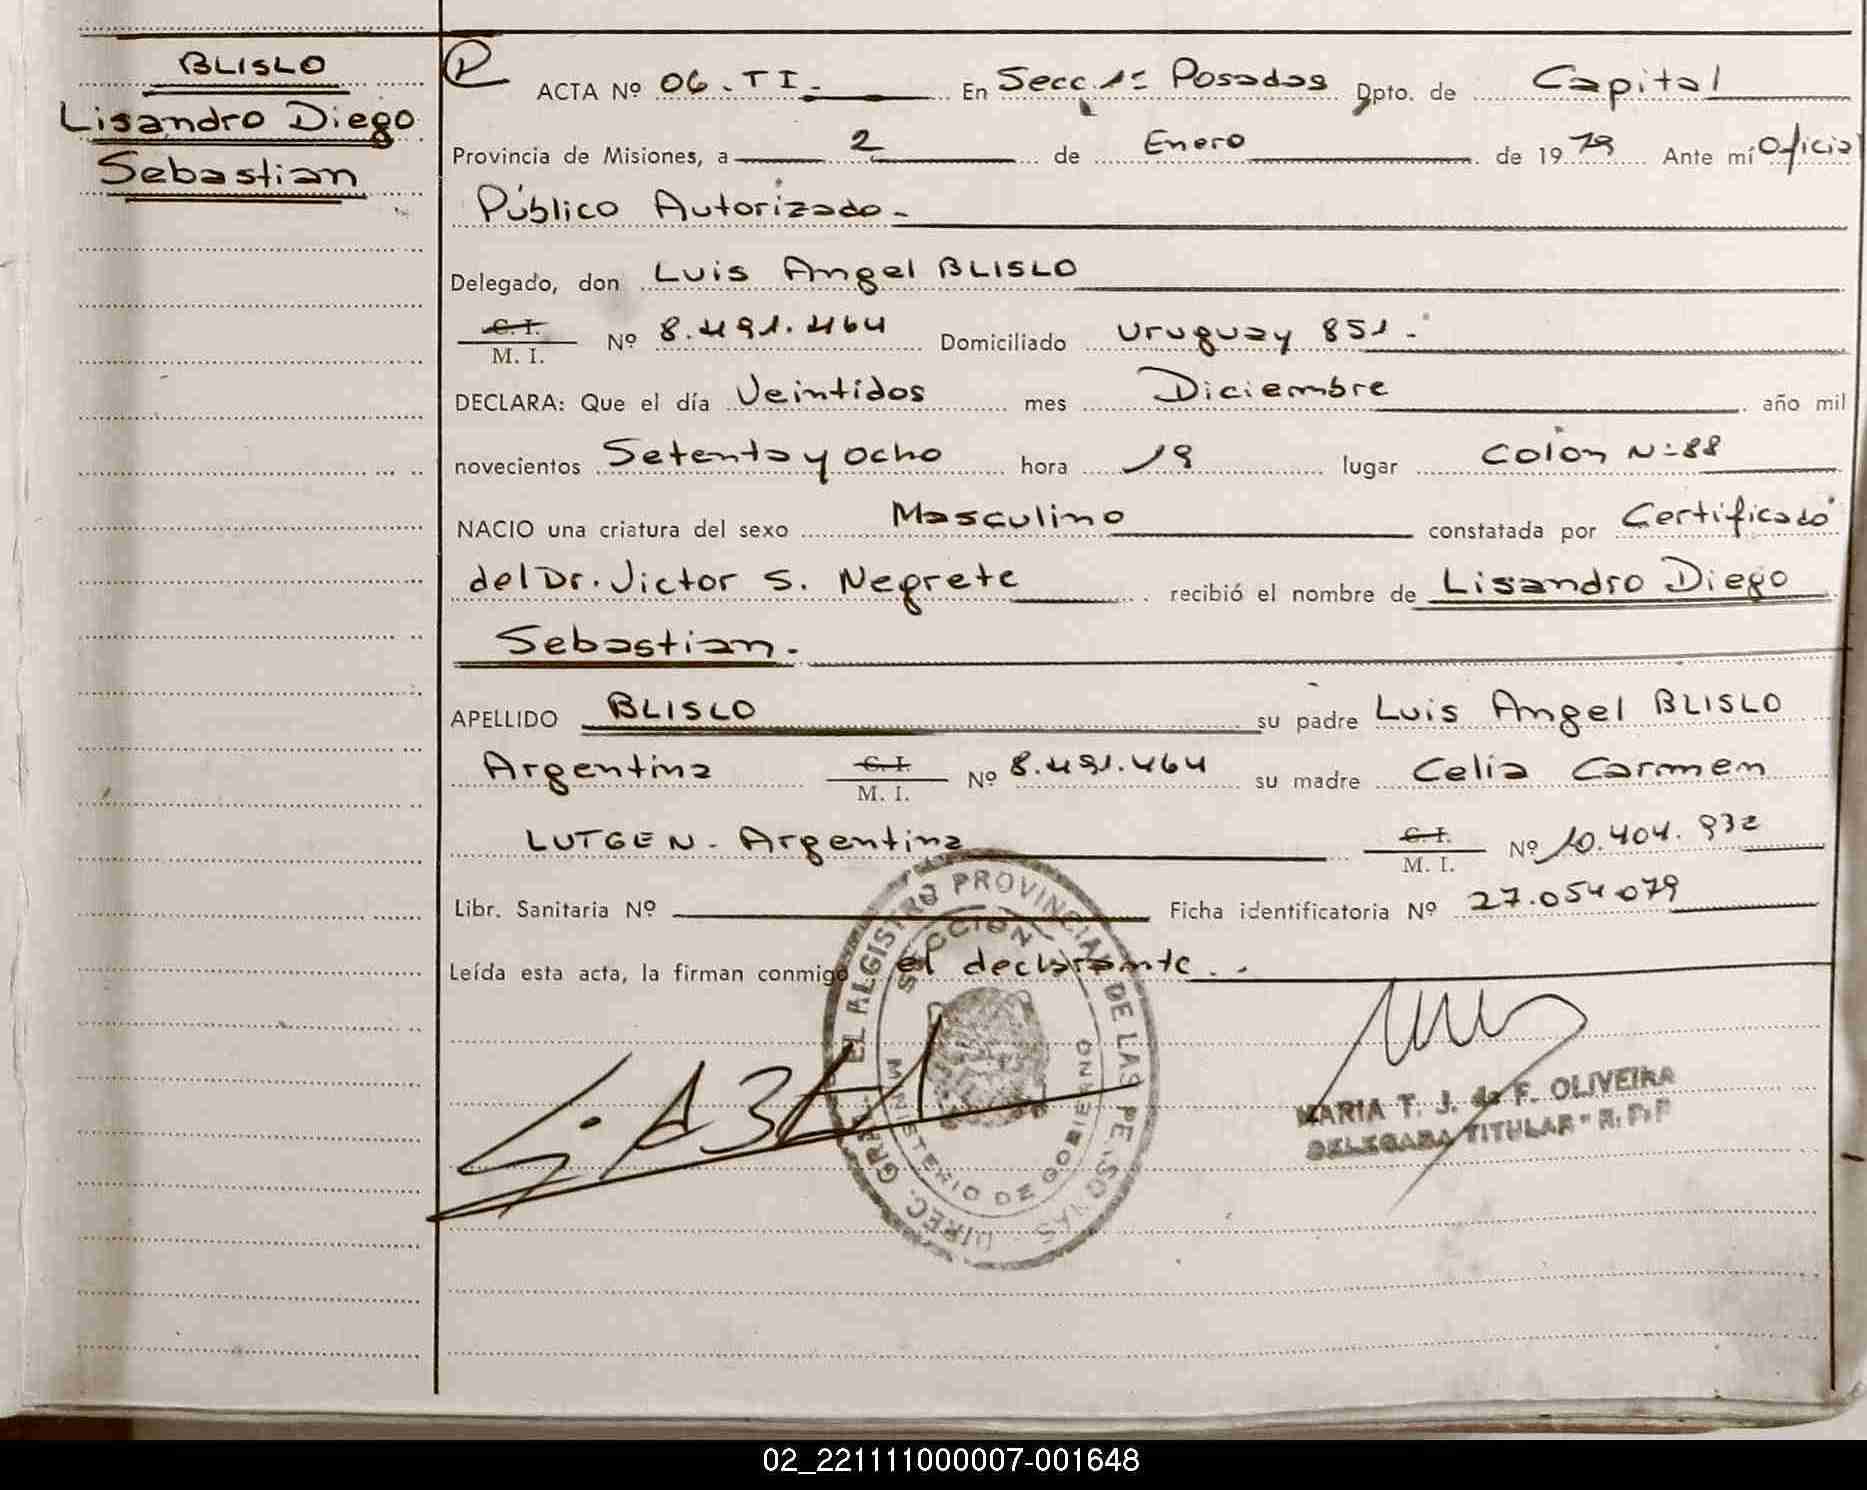 BLISLO
Lisandro Diego
Sebastian
ACTA Nº 06.TI. En Secc 1º Posadas Dpto. de Capital
Provincia de Misiones, a 2 de Enero de 1979 Ante mí Oficial
Público Autorizado.
Delegado, don Luis Angel BLISLO
C. I.
M. I. Nº 8.491.464 Domiciliado Uruguay 851.
DECLARA: Que el día Veintidos mes Diciembre año mil
novecientos Setenta y ocho hora 19 lugar Colón Nº 88
NACIO una criatura del sexo Masculino constatada por Certificado
del Dr. Victor S. Negrete recibió el nombre de Lisandro Diego
Sebastian.
APELLIDO BLISLO su padre Luis Angel BLISLO
Argentina C. I. M. I. Nº 8.491.464 su madre Celia Carmen
LUTGEN. Argentina C. I. M. I. Nº 10.404.932
Libr. Sanitaria Nº Ficha identificatoria Nº 27.054.079
Leída esta acta, la firman conmigo el declarante..
REGISTRO PROVINCIAL DE LAS PERSONAS
SECCION
MINISTERIO DE GOBIERNO
DIREC. GRAL.
MARIA T. J. de F. OLIVEIRA
DELEGADA TITULAR - R. P. P
02_221111000007-001648